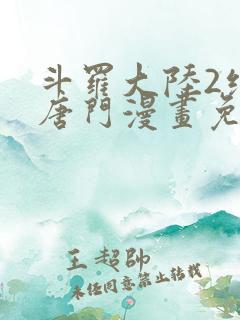 斗羅大陸2
唐門漫畫免
王超帥
未经同意禁止转载